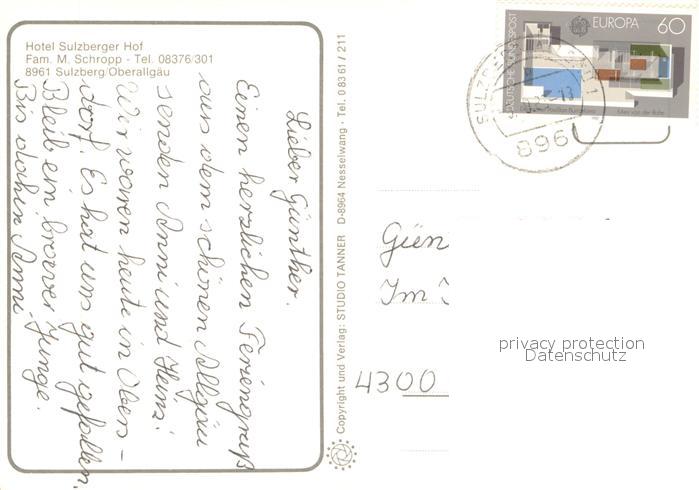 Hotel Sulzberger Hof
Fam. M. Schropp - Tel. 08376/301
8961 Sulzberg/Oberallgäu
Lieber Günther.
Einen herzlichen Feriengruß
aus dem schönen Allgäu
senden Anni und Heinz.
Wir waren heute in Obers-
dorf. Es hat uns gut gefallen.
Bleib ein braver Junge.
Bis dahin Anni.
Copyright und Verlag: STUDIO TANNER D-8964 Nesselwang · Tel. 08361/211
DEUTSCHE BUNDESPOST
EUROPA 60
896
Gün
Im
4300
privacy protection
Datenschutz